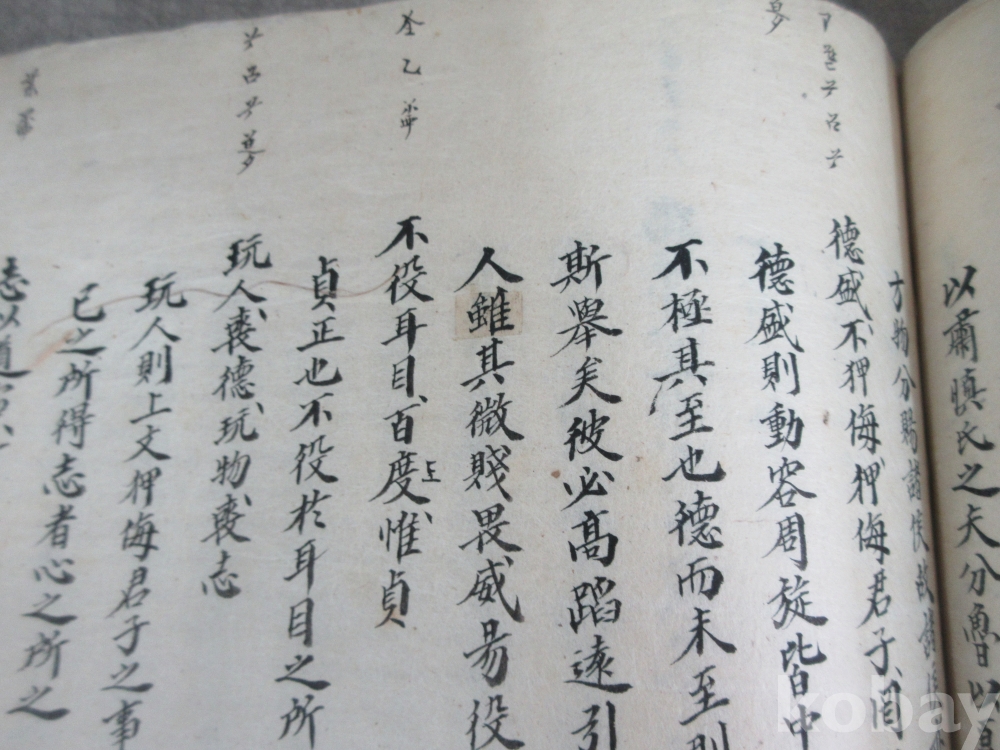 以肅愼氏之矢分魯以
方物分賜諸侯故諸
德盛、不狎侮、狎侮君子、罔
德盛則動容周旋皆中
不極其至也德而未至則
斯擧矣彼必高蹈遠引
人雖其微賤畏威易役
不役耳目、百度、惟貞
貞正也不役於耳目之所
玩人、喪德、玩物、喪志
玩人則上文狎侮君子之事
已之所得志者心之所之
志以道
kobay